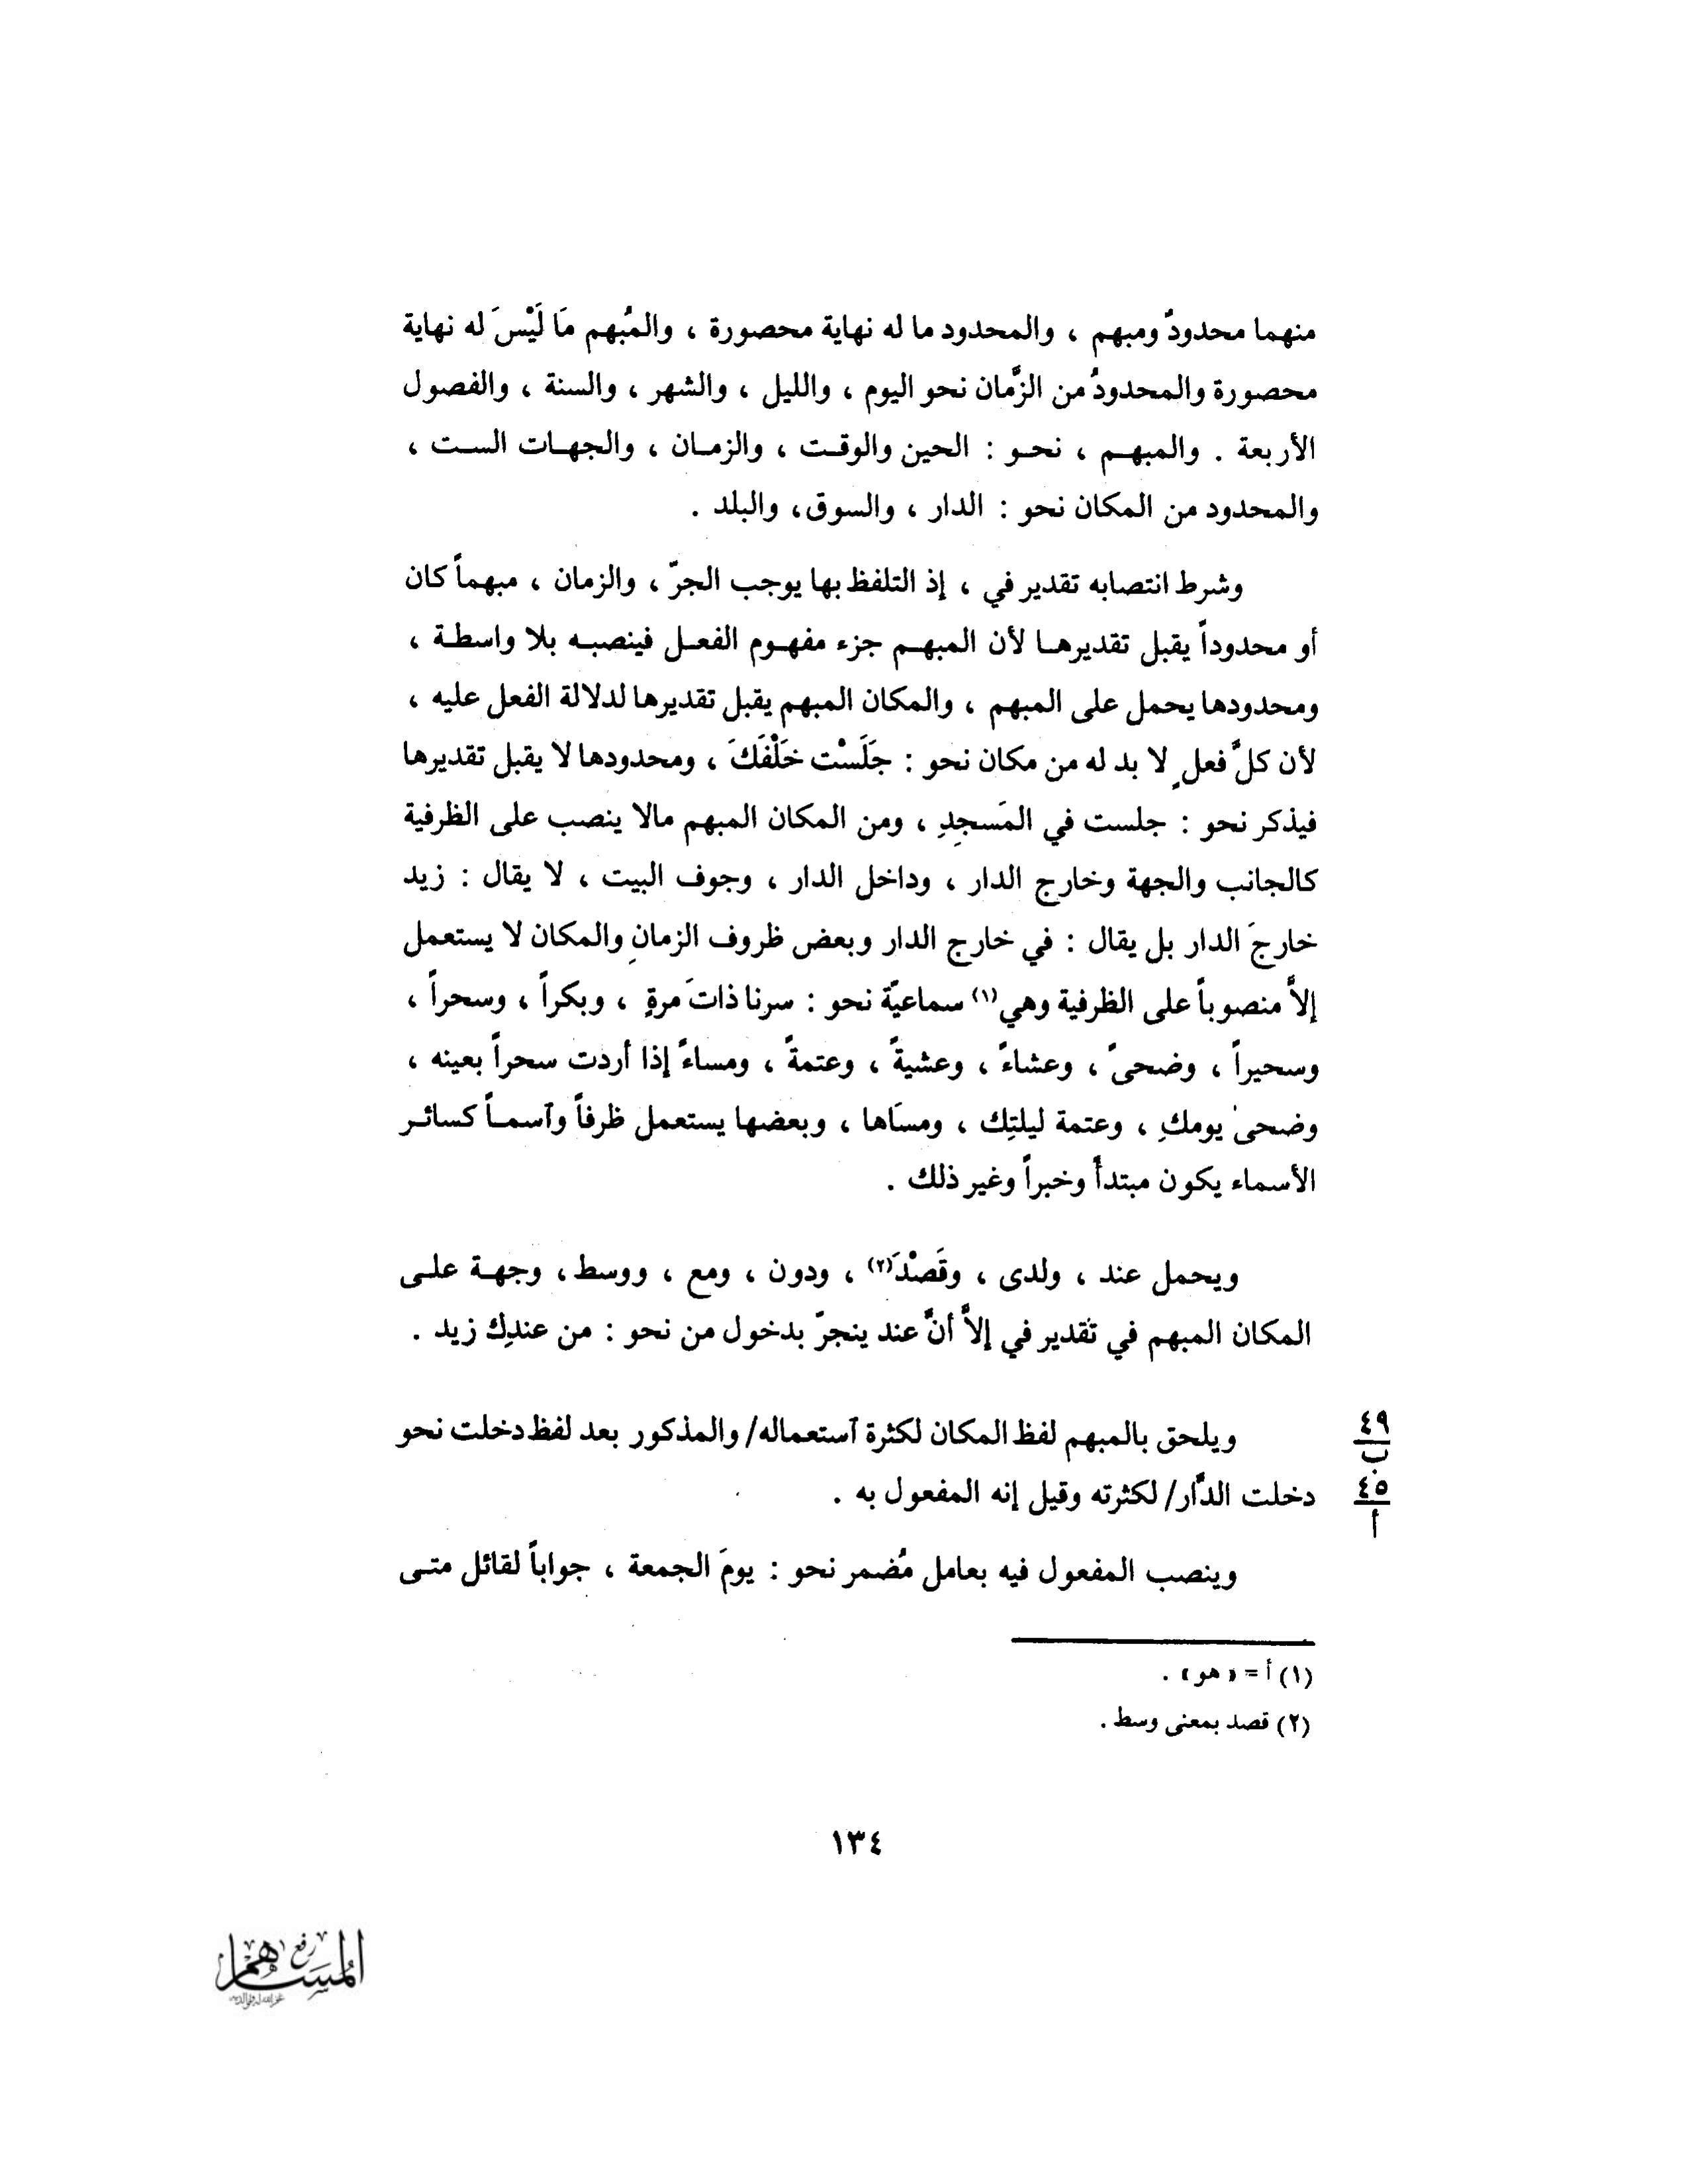 منهما محدودٌ ومبهم ، والمحدود ما له نهاية محصورة ، والمُبهم مَا لَيْسَ له نهاية
محصورة والمحدودُ من الزَّمان نحو اليوم ، والليل ، والشهر ، والسنة ، والفصول
الأربعة . والمبهم ، نحو : الحين والوقت ، والزمان ، والجهات الست ،
والمحدود من المكان نحو : الدار ، والسوق، والبلد .
وشرط انتصابه تقدير في ، إذ التلفظ بها يوجب الجرّ ، والزمان ، مبهماً كان
أو محدوداً يقبل تقديرها لأن المبهم جزء مفهوم الفعل فينصبه بلا واسطة ،
ومحدودها يحمل على المبهم ، والمكان المبهم يقبل تقديرها لدلالة الفعل عليه ،
لأن كلَّ فعلٍ لا بد له من مكان نحو : جَلَسْت خَلْفَكَ ، ومحدودها لا يقبل تقديرها
فيذكر نحو : جلست في المَسجدِ ، ومن المكان المبهم مالا ينصب على الظرفية
كالجانب والجهة وخارج الدار ، وداخل الدار ، وجوف البيت ، لا يقال : زيد
خارجَ الدار بل يقال : في خارج الدار وبعض ظروف الزمانِ والمكان لا يستعمل
إلاَّ منصوباً على الظرفية وهي(١) سماعيّة نحو : سرنا ذاتَ مرةٍ ، وبكراً ، وسحراً ،
وسحيراً ، وضحىً ، وعشاءً ، وعشيةً ، وعتمةً ، ومساءً إذا أردت سحراً بعينه ،
وضحىٰ يومكِ ، وعتمة ليلتِك ، ومسَاها ، وبعضها يستعمل ظرفاً وآسماً كسائر
الأسماء يكون مبتدأً وخبراً وغير ذلك .
ويحمل عند ، ولدى ، وقَصْدَ(٢) ، ودون ، ومع ، ووسط ، وجهة على
المكان المبهم في تقدير في إلاَّ أنَّ عند ينجرّ بدخول من نحو : من عندِك زيد .
ويلحق بالمبهم لفظ المكان لكثرة آستعماله/ والمذكور بعد لفظ دخلت نحو
٤٩
ب
دخلت الدَّار/ لكثرته وقيل إنه المفعول به .
٤٥
أ
وينصب المفعول فيه بعامل مُضمر نحو : يومَ الجمعة ، جواباً لقائل متى
(١) أ = « هو » .
(٢) قصد بمعنى وسط .
١٣٤
رفع
المساهم